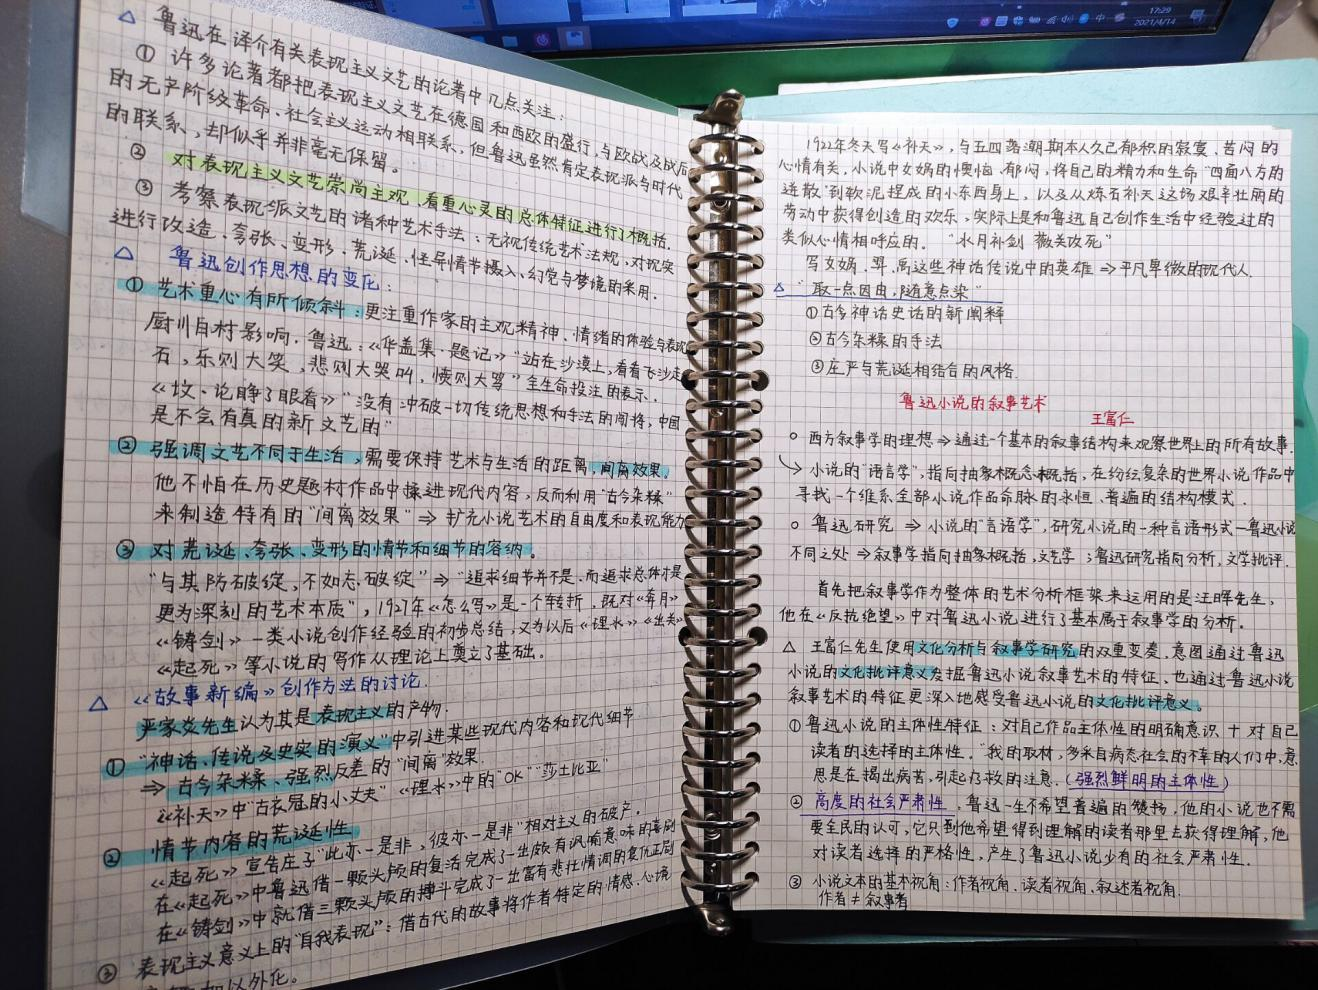 17:29
2021/4/14
△ 鲁迅在译介有关表现主义文艺的论著中几点关注:
① 许多论著都把表现主义文艺在德国和西欧的盛行,与欧战及战后
的无产阶级革命、社会主义运动相联系,但鲁迅虽然肯定表现派与时代
的联系,却似乎并非毫无保留。
② 对表现主义文艺崇尚主观、看重心灵的总体特征进行了概括.
③ 考察表现派文艺的诸种艺术手法:无视传统艺术法规,对现实
进行改造、夸张、变形、荒诞、怪异情节摄入、幻觉与梦境的采用.
△ 鲁迅创作思想的变化:
① 艺术重心有所倾斜:更注重作家的主观精神、情绪的体验与表现
厨川白村影响.鲁迅:《华盖集·题记》"站在沙漠上,看看飞沙走
石,乐则大笑,悲则大哭叫,愤则大骂"全生命投注的表示.
《坟、论睁了眼看》"没有冲破一切传统思想和手法的闯将,中国
是不会有真的新文艺的"
② 强调文艺不同于生活,需要保持艺术与生活的距离,间离效果。
他不怕在历史题材作品中揉进现代内容,反而利用"古今杂糅"
来制造特有的"间离效果"⇒ 扩充小说艺术的自由度和表现能力
③ 对荒诞、夸张、变形的情节和细节的容纳。
"与其防破绽,不如忘破绽"⇒"追求细节并不是.而追求总体才是
更为深刻的艺术本质",1927年《怎么写》是一个转折.既对《奔月》
《铸剑》一类小说创作经验的初步总结,又为以后《理水》《出关》
《起死》等小说的写作从理论上奠立了基础。
△ 《故事新编》创作方法的讨论
严家炎先生认为其是表现主义的产物.
① "神话、传说及史实的演义"中引进某些现代内容和现代细节
⇒ 古今杂糅、强烈反差的"间离"效果.
《补天》中"古衣冠的小丈夫"《理水》中的"OK""莎士比亚"
② 情节内容的荒诞性
《起死》宣告庄子"此亦一是非,彼亦一是非"相对主义的破产.
在《起死》中鲁迅借一颗头颅的复活完成了一出颇有讽喻意味的喜剧
在《铸剑》中就借三颗头颅的搏斗完成了一出富有悲壮情调的复仇正剧
③ 表现主义意义上的"自我表现":借古代的故事将作者特定的情感、心境
加以外化。
1922年冬天写《补天》,与五四落潮期本人久已郁积的寂寞、苦闷的
心情有关.小说中女娲的懊恼、郁闷,将自己的精力和生命"四面八方的
迸散"到软泥捏成的小东西身上,以及从炼石补天这场艰辛壮丽的
劳动中获得创造的欢乐,实际上是和鲁迅自己创作生活中经验过的
类似心情相呼应的。"水月补剑 薇关攻死"
写女娲、羿、禹这些神话传说中的英雄⇒平凡卑微的现代人.
△ "取一点因由,随意点染"
①古今神话史话的新阐释
②古今杂糅的手法
③庄严与荒诞相结合的风格.
鲁迅小说的叙事艺术
王富仁
○ 西方叙事学的理想⇒通过一个基本的叙事结构来观察世界上的所有故事.
↳ 小说的"语言学",指向抽象概念概括,在纷纭复杂的世界小说作品中
寻找一个维系全部小说作品命脉的永恒、普遍的结构模式.
○ 鲁迅研究 ⇒ 小说的"言语学",研究小说的一种言语形式—鲁迅小说
不同之处⇒叙事学指向抽象概括,文艺学;鲁迅研究指向分析,文学批评.
首先把叙事学作为整体的艺术分析框架来运用的是汪晖先生,
他在《反抗绝望》中对鲁迅小说进行了基本属于叙事学的分析.
△ 王富仁先生使用文化分析与叙事学研究的双重变奏,意图通过鲁迅
小说的文化批评意义发掘鲁迅小说叙事艺术的特征、也通过鲁迅小说
叙事艺术的特征更深入地感受鲁迅小说的文化批评意义。
① 鲁迅小说的主体性特征:对自己作品主体性的明确意识 + 对自己
读者的选择的主体性。"我的取材,多采自病态社会的不幸的人们中,意
思是在揭出病苦,引起疗救的注意.(强烈鲜明的主体性)
② 高度的社会严肃性.鲁迅一生不希望普遍的赞扬,他的小说也不需
要全民的认可,它只到他希望得到理解的读者那里去获得理解,他
对读者选择的严格性,产生了鲁迅小说少有的社会严肃性.
③ 小说文本的基本视角:作者视角、读者视角、叙述者视角.
作者≠叙事者